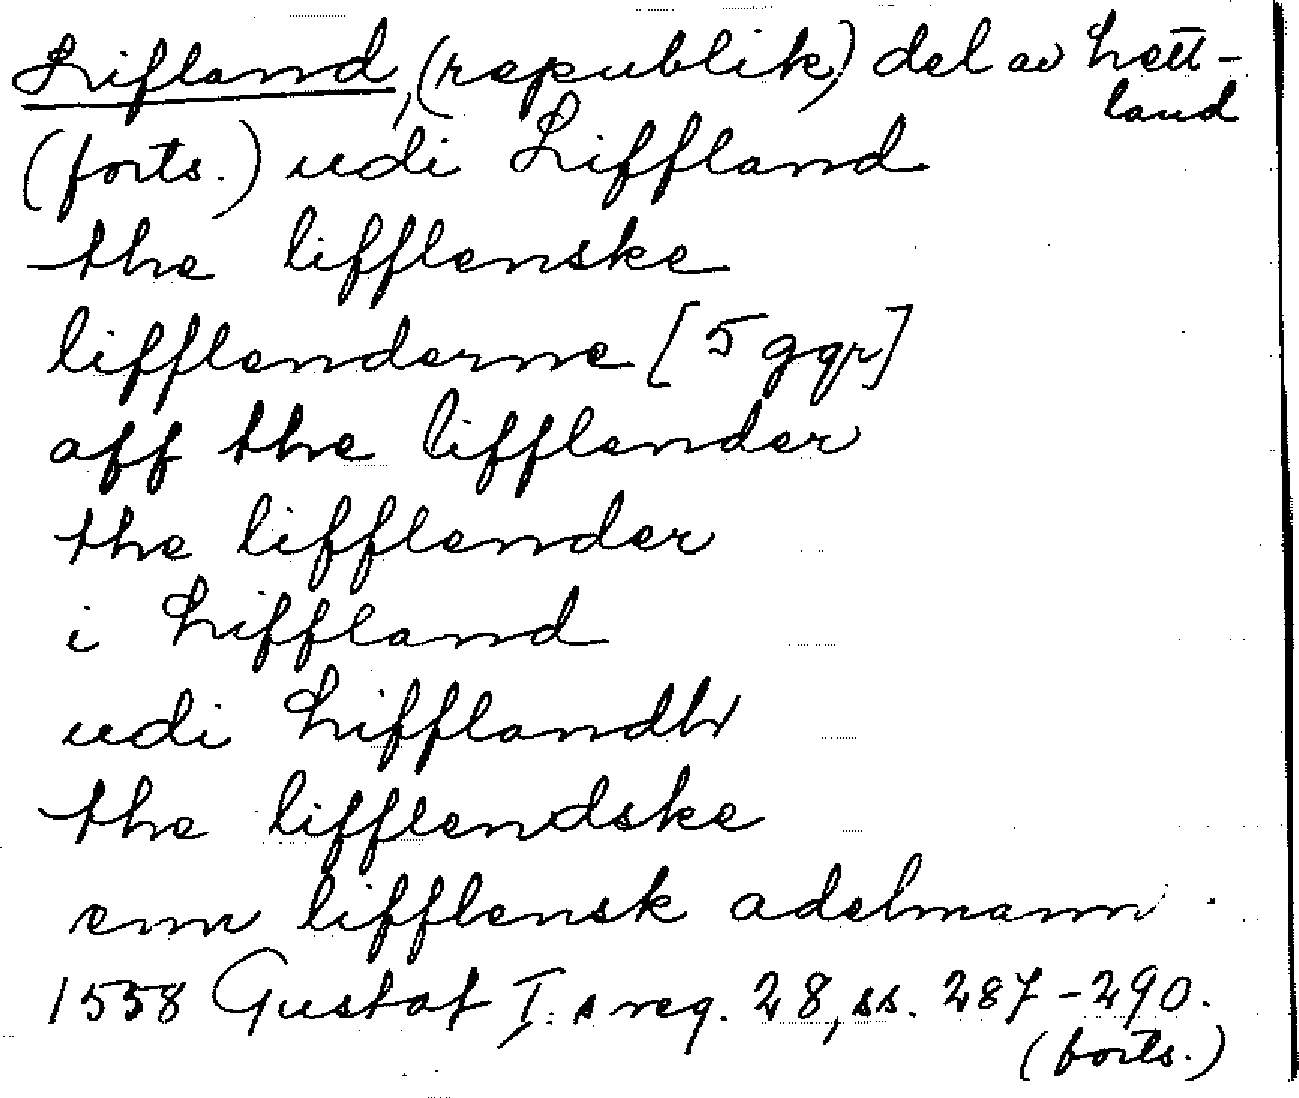 Lifland, (republik) del av Lett-
land
(forts.) udi Liffland
the lifflenske
lifflenderne [5 ggr]
aff the lifflender
the lifflender
i Liffland
udi Lifflandh
the lifflendske
enn lifflensk adelmann.
1558 Gustaf I:s reg. 28, ss. 287-290.
(forts.)